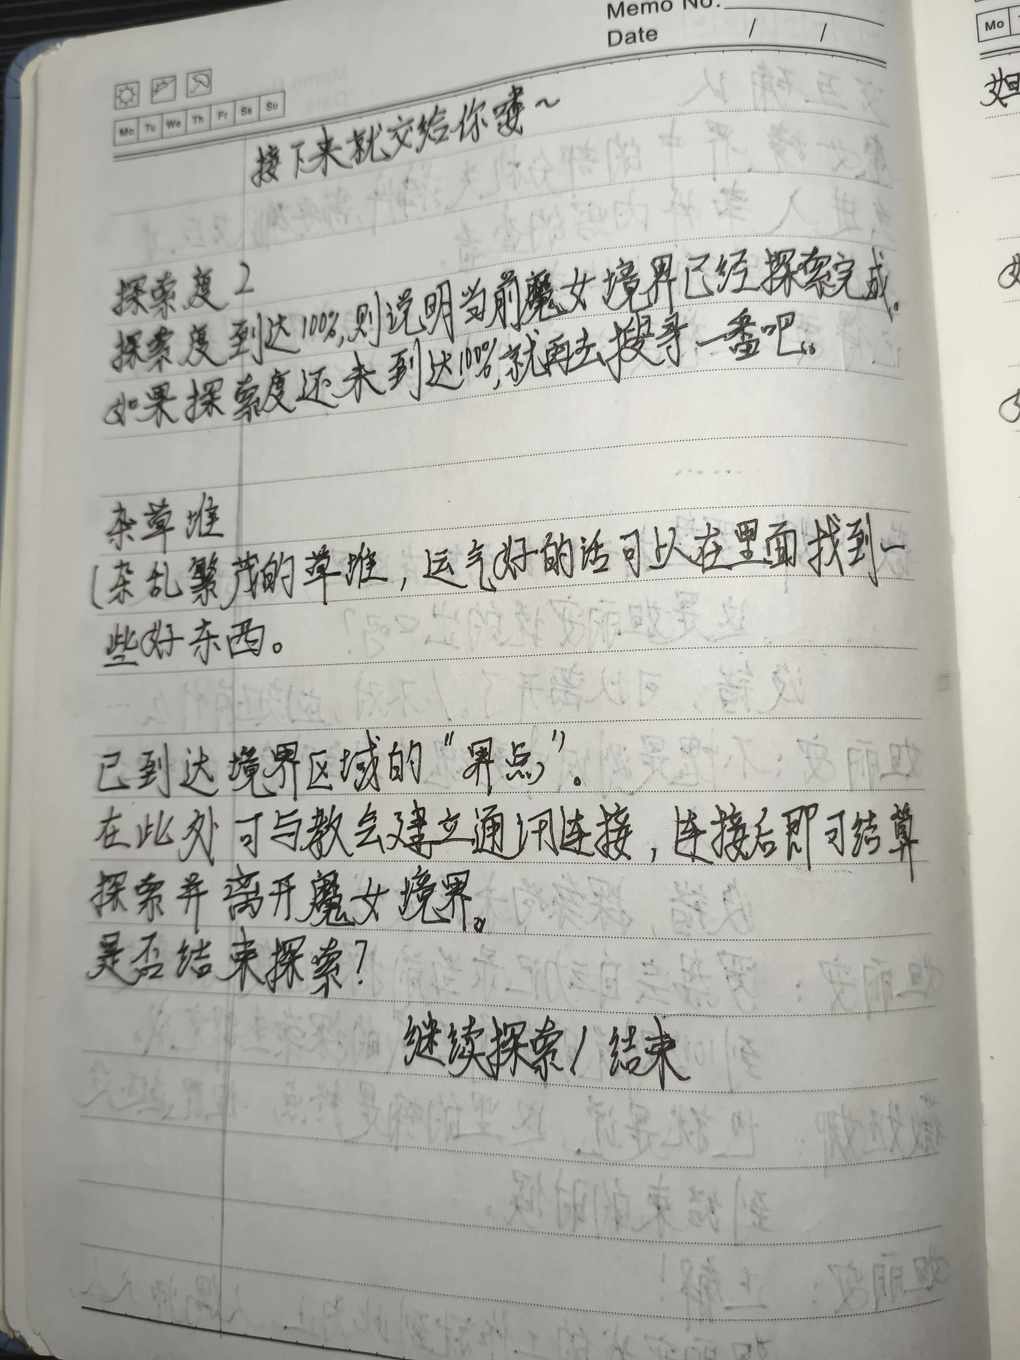 Memo No.
Date / /
Mo Tu We Th Fr Sa Su
Mo
接下来就交给你喽~
探索度2
探索度到达100%,则说明当前魔女境界已经探索完成。
如果探索度还未到达100%,就再去搜寻一番吧。
杂草堆
(杂乱繁茂的草堆，运气好的话可以在里面找到一
些好东西。
已到达境界区域的“界点”。
在此处可与教会建立通讯连接，连接后即可结算
探索并离开魔女境界。
是否结束探索？
继续探索/结束